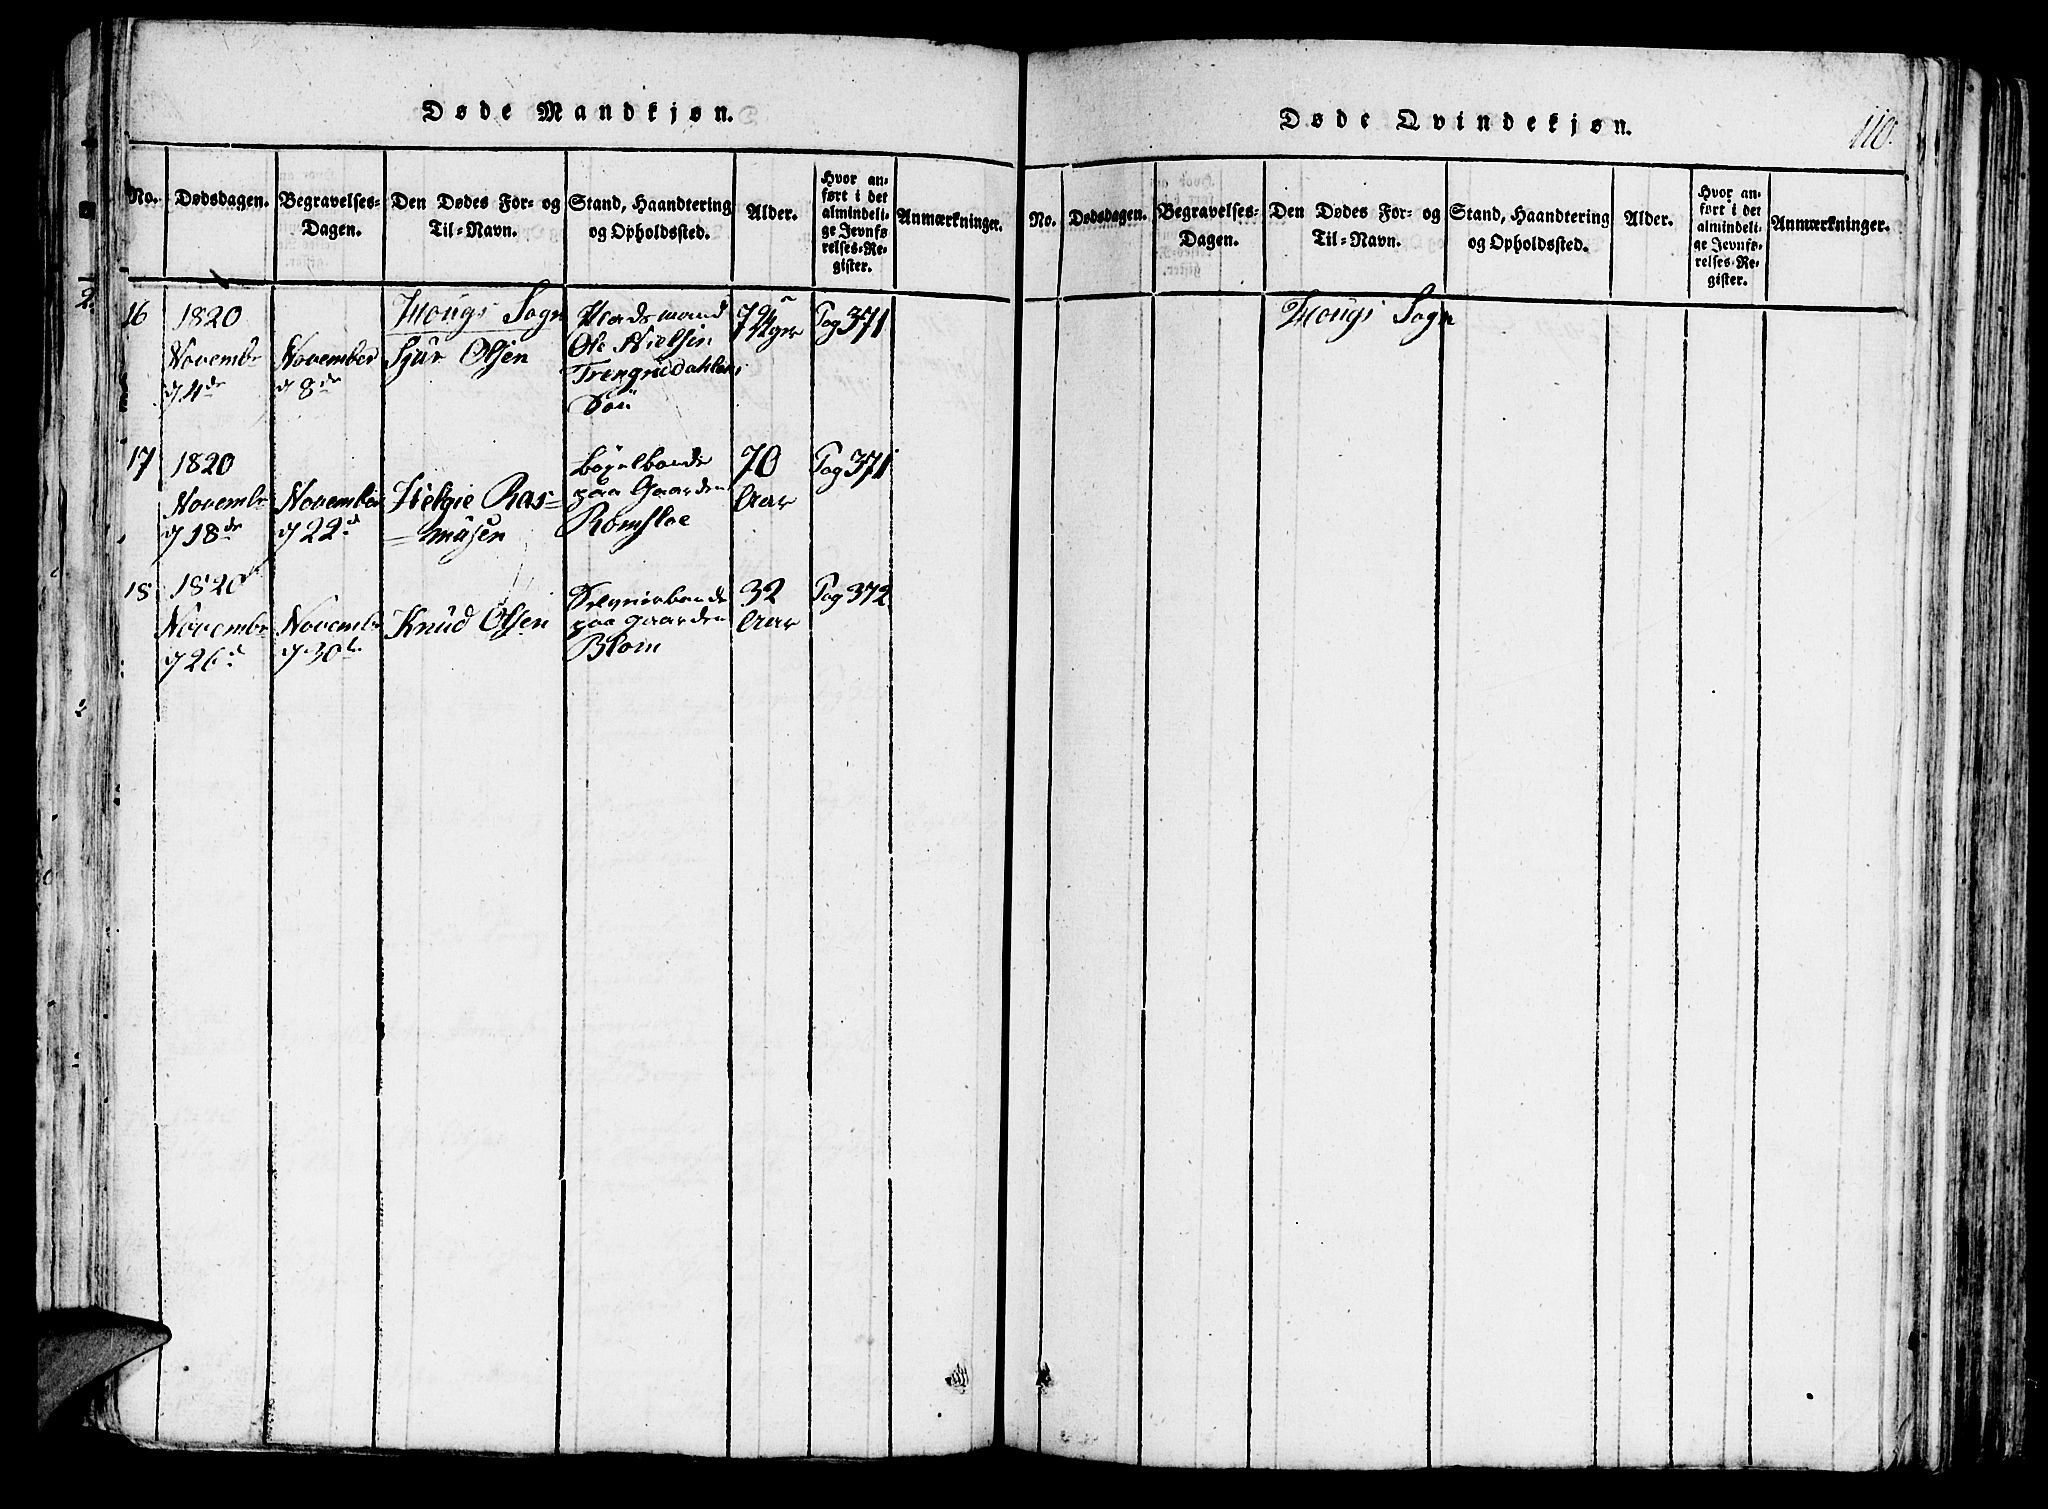 Døde Mandkjøn.
No.
Dødsdagen.
Begravelses-
Dagen.
Den Dødes For- og
Til-Navn.
Stand, Haandtering
og Opholdssted.
Alder.
Hvor an-
ført i det
almindeli-
ge Jevnfø-
relses-Re-
gister.
Anmærkninger.
Hougs Sogn
16
1820
Novembr
d 4de
November
d 8de
Sjur Olsen
Huusmand
Ole Nielsin
Søn
Pag 371
17
1820
Novembr
d 18de
November
d 22d
Helgie Ras=
=musen
paa Gaarden
Romsloe
70
Aar
Pag 371
18
1820
Novembr
d 26d
Novembr
d 30te
Knud Olsen
paa gaarden
Blom
32
Aar
Pag 372
Døde Qvindekjøn.
110.
No.
Dødsdagen.
Begravelses-
Dagen.
Den Dødes For- og
Til-Navn.
Stand, Haandtering
og Opholdssted.
Alder.
Hvor an-
ført i det
almindeli-
ge Jevnfø-
relses-Re-
gister.
Anmærkninger.
Hougs Sogn